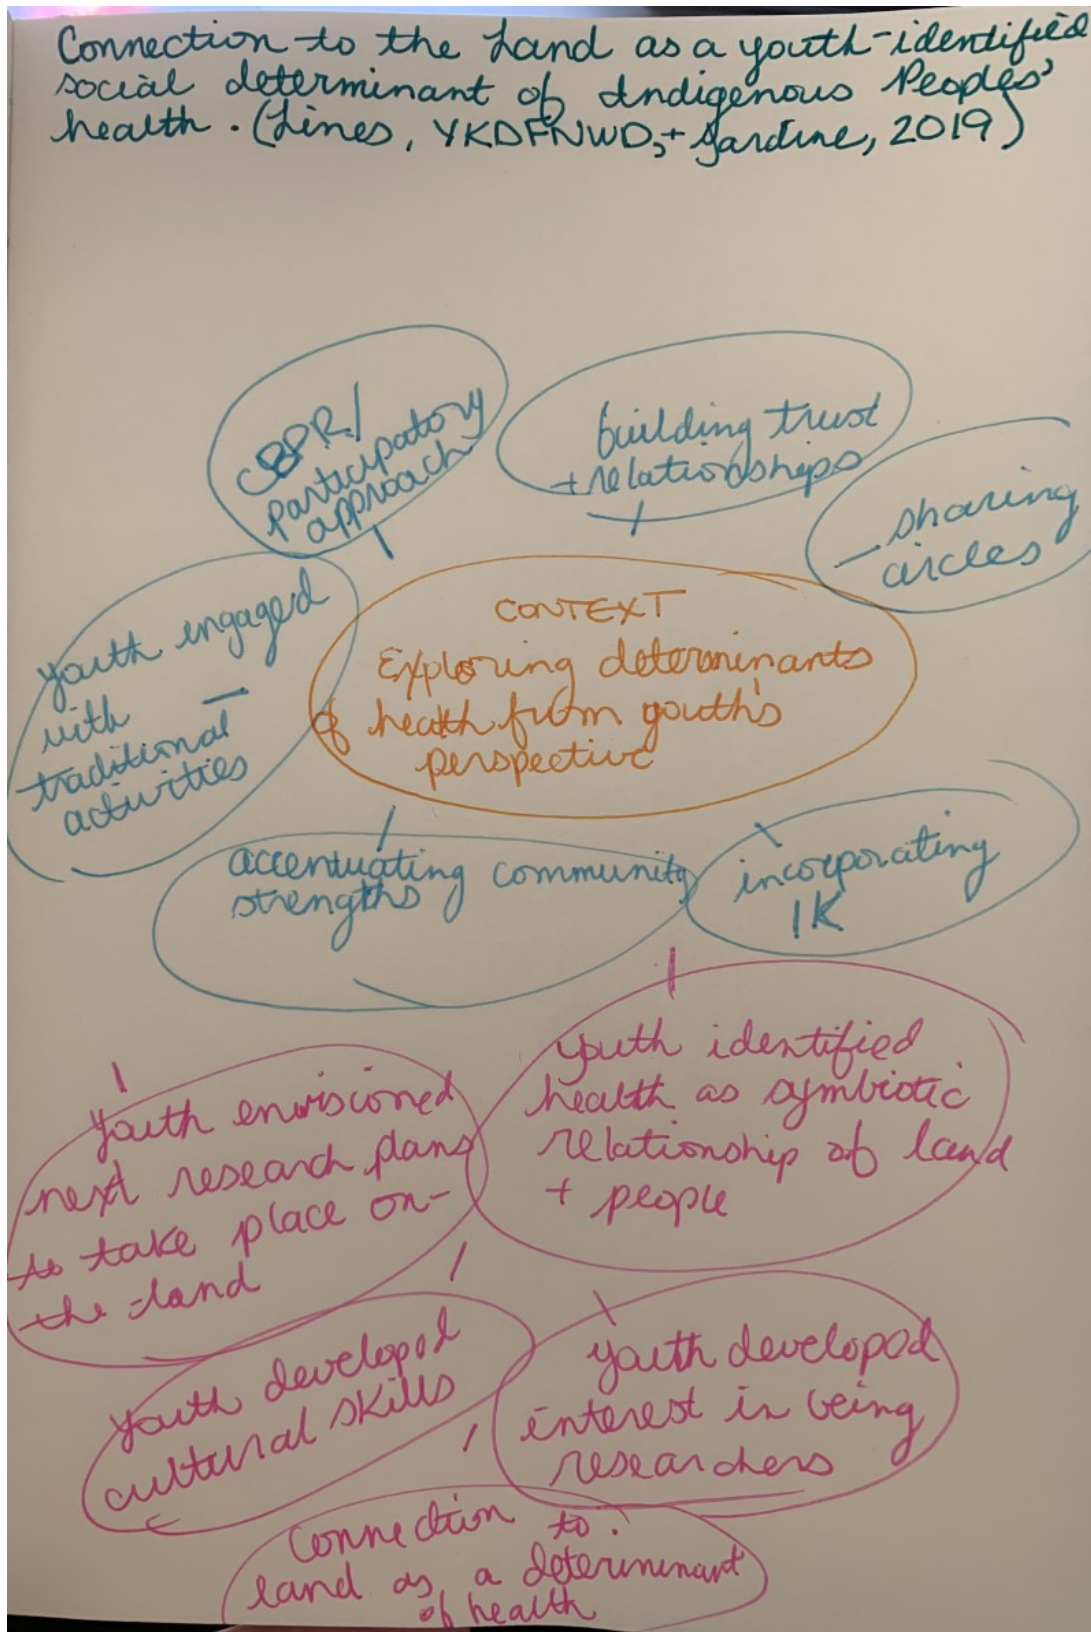 Connection to the Land as a youth-identified
social determinant of Indigenous Peoples'
health. (Lines, YKDFNWD, + Jardine, 2019)
CBPR/
participatory
approach
building trust
+ relationships
sharing
circles
youth engaged
with
traditional
activities
CONTEXT
Exploring determinants
of health from youth's
perspective
accentuating community
strengths
incorporating
IK
youth identified
health as symbiotic
relationship of land
+ people
Youth envisioned
next research plans
to take place on-
the-land
youth developed
cultural skills
youth developed
interest in being
researchers
Connection to
land as a determinant
of health